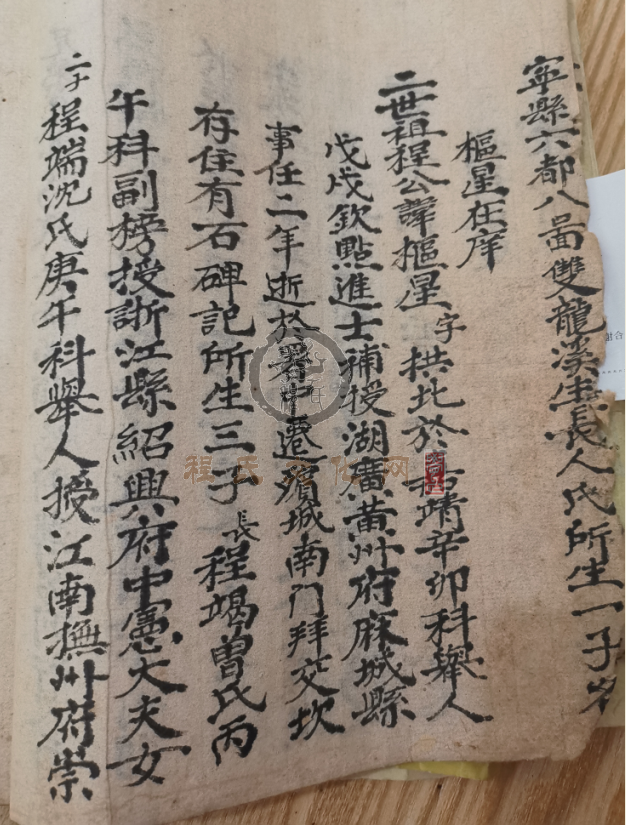 寧縣六都八啚雙龍溪生長人氏所生一子名
樞星在庠
二世祖程公諱樞星字拱北於靖辛卯科舉人
戊戌欽點進士補授湖廣黄州府麻城縣
事任二年逝於署中遷殯城南门拜交坎
存住有石碑記所生三子長程竭曽氏丙
午科副榜授浙江縣紹興府中憲大夫女
二子程端沈氏庚午科舉人授江南撫州府崇
程氏文化网